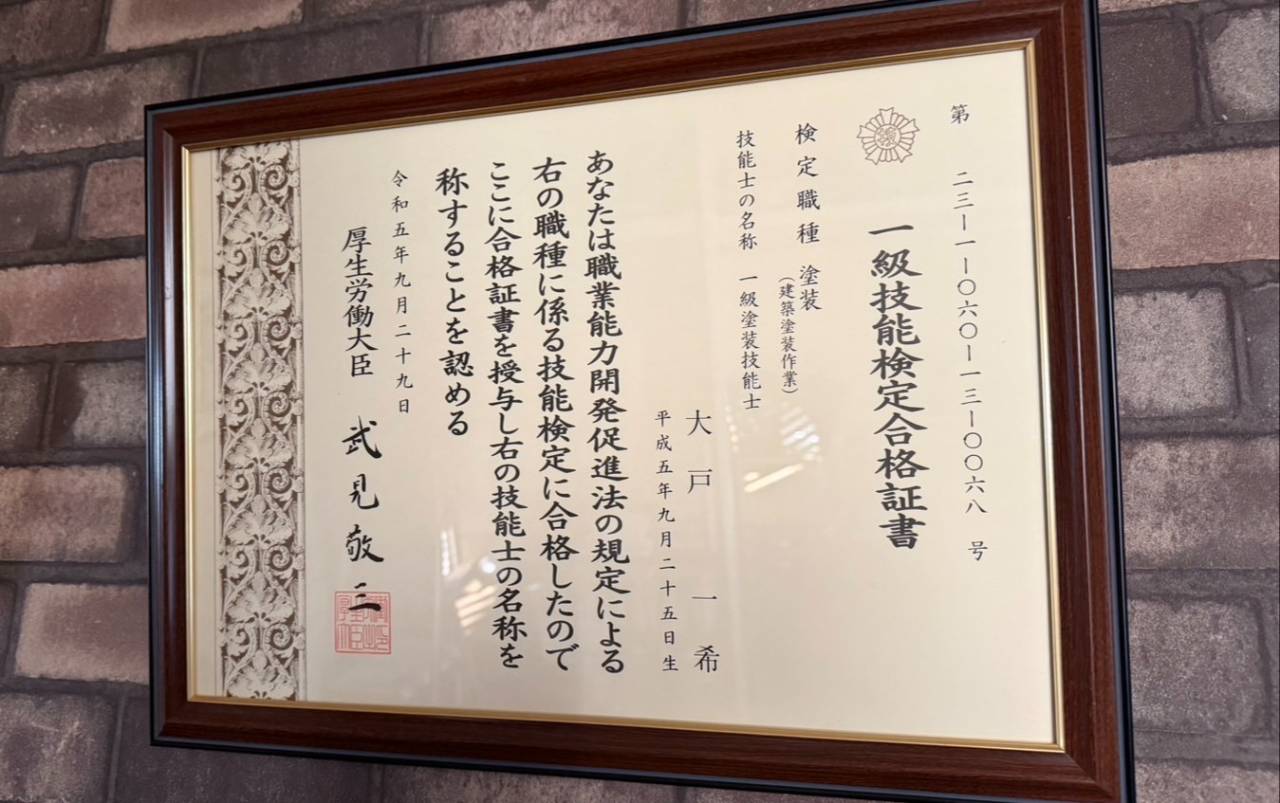 第 二三ー一ー〇六〇ー一三ー〇〇六八 号
一級技能検定合格証書
検定職種 塗装
(建築塗装作業)
技能士の名称 一級塗装技能士
大戸 一希
平成五年九月二十五日生
あなたは職業能力開発促進法の規定による
右の職種に係る技能検定に合格したので
ここに合格証書を授与し右の技能士の名称を
称することを認める
令和五年九月二十九日
厚生労働大臣 武見敬三